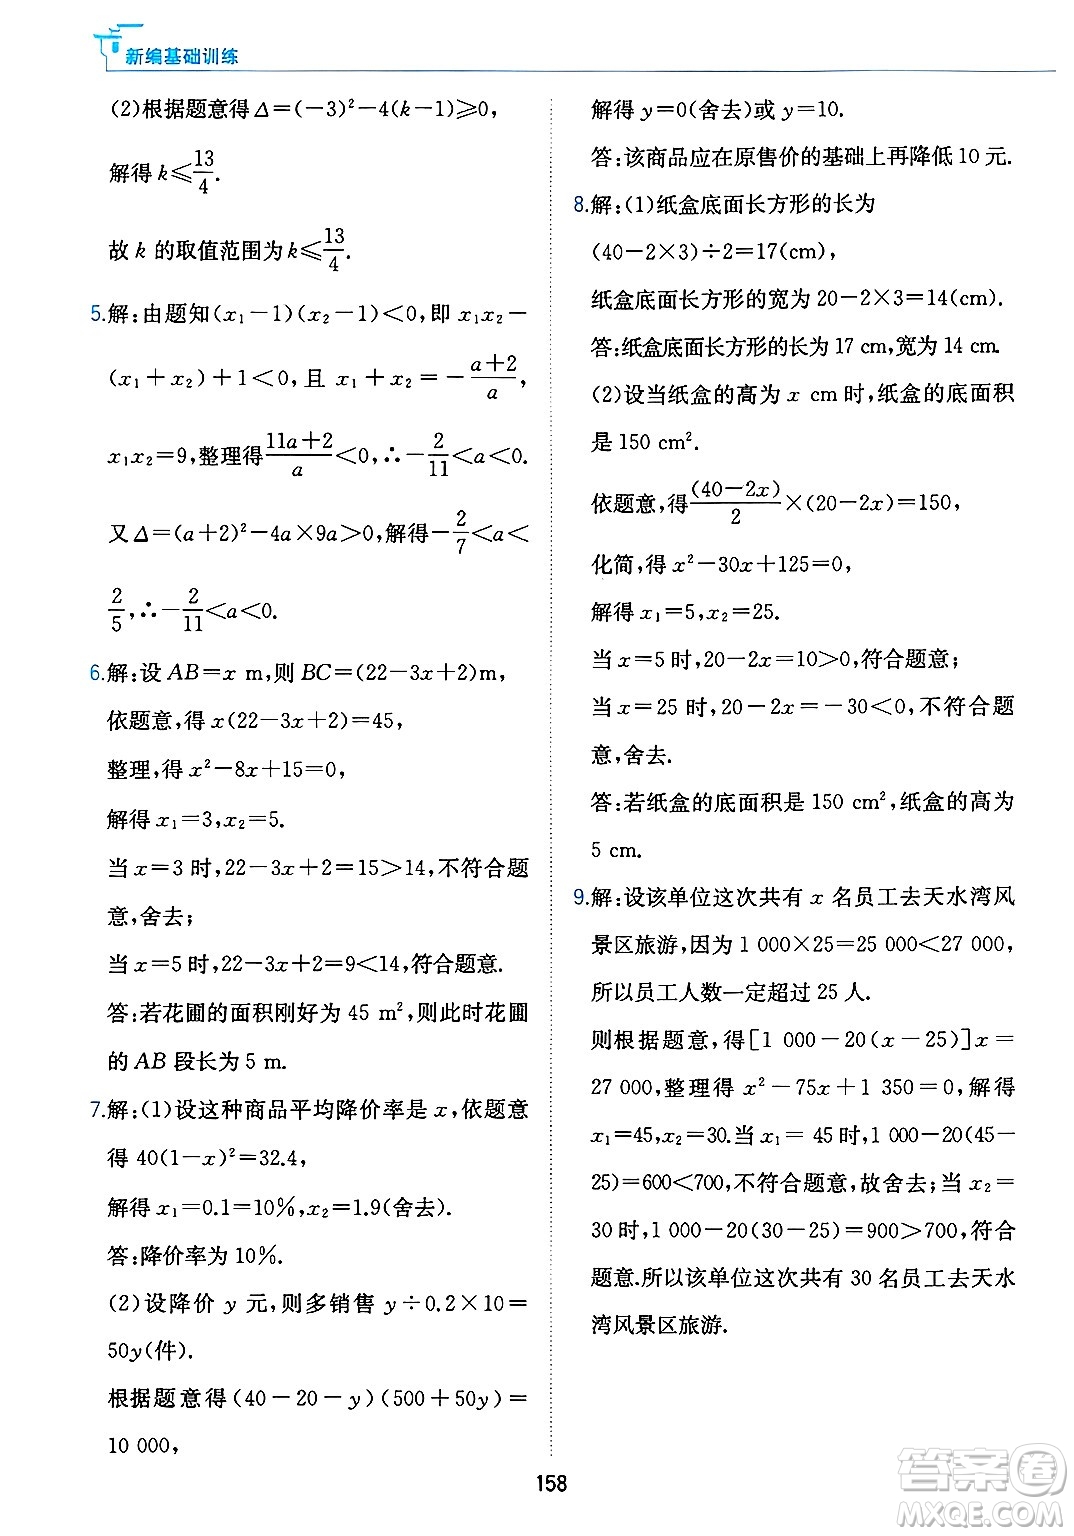 新编基础训练
(2)根据题意得 Δ=(-3)²-4(k-1)≥0,
解得 k≤13/4.
故 k 的取值范围为 k≤13/4.
5.解:由题知(x₁-1)(x₂-1)<0,即 x₁x₂-
(x₁+x₂)+1<0,且 x₁+x₂=-(a+2)/a,
x₁x₂=9,整理得(11a+2)/a<0,∴-2/11<a<0.
又 Δ=(a+2)²-4a×9a>0,解得-2/7<a<
2/5,∴-2/11<a<0.
6.解:设 AB=x m,则 BC=(22-3x+2)m,
依题意,得 x(22-3x+2)=45,
整理,得 x²-8x+15=0,
解得 x₁=3,x₂=5.
当 x=3 时,22-3x+2=15>14,不符合题
意,舍去;
当 x=5 时,22-3x+2=9<14,符合题意.
答:若花圃的面积刚好为 45 m²,此时花圃
的 AB 段长为 5 m.
7.解:(1)设这种商品平均降价率是 x,依题意
得 40(1-x)²=32.4,
解得 x₁=0.1=10%,x₂=1.9(舍去).
答:降价率为 10%.
(2)设降价 y 元,则多销售 y÷0.2×10=
50y(件).
根据题意得(40-20-y)(500+50y)=
10 000,
解得 y=0(舍去)或 y=10.
答:该商品应在原售价的基础上再降低 10 元.
8.解:(1)纸盒底面长方形的长为
(40-2×3)÷2=17(cm),
纸盒底面长方形的宽为 20-2×3=14(cm).
答:纸盒底面长方形的长为 17 cm,宽为 14 cm.
(2)设当纸盒的高为 x cm 时,纸盒的底面积
是 150 cm².
依题意,得(40-2x)/2×(20-2x)=150,
化简,得 x²-30x+125=0,
解得 x₁=5,x₂=25.
当 x=5 时,20-2x=10>0,符合题意;
当 x=25 时,20-2x=-30<0,不符合题
意,舍去.
答:若纸盒的底面积是 150 cm²,纸盒的高为
5 cm.
9.解:设该单位这次共有 x 名员工去天水湾风
景区旅游,因为 1 000×25=25 000<27 000,
所以员工人数一定超过 25 人.
则根据题意,得[1 000-20(x-25)]x=
27 000,整理得 x²-75x+1 350=0,解得
x₁=45,x₂=30.当 x₁=45 时,1 000-20(45-
25)=600<700,不符合题意,故舍去;当 x₂=
30 时,1 000-20(30-25)=900>700,符合
题意.所以该单位这次共有 30 名员工去天水
湾风景区旅游.
158
答案圈
MXQE.COM